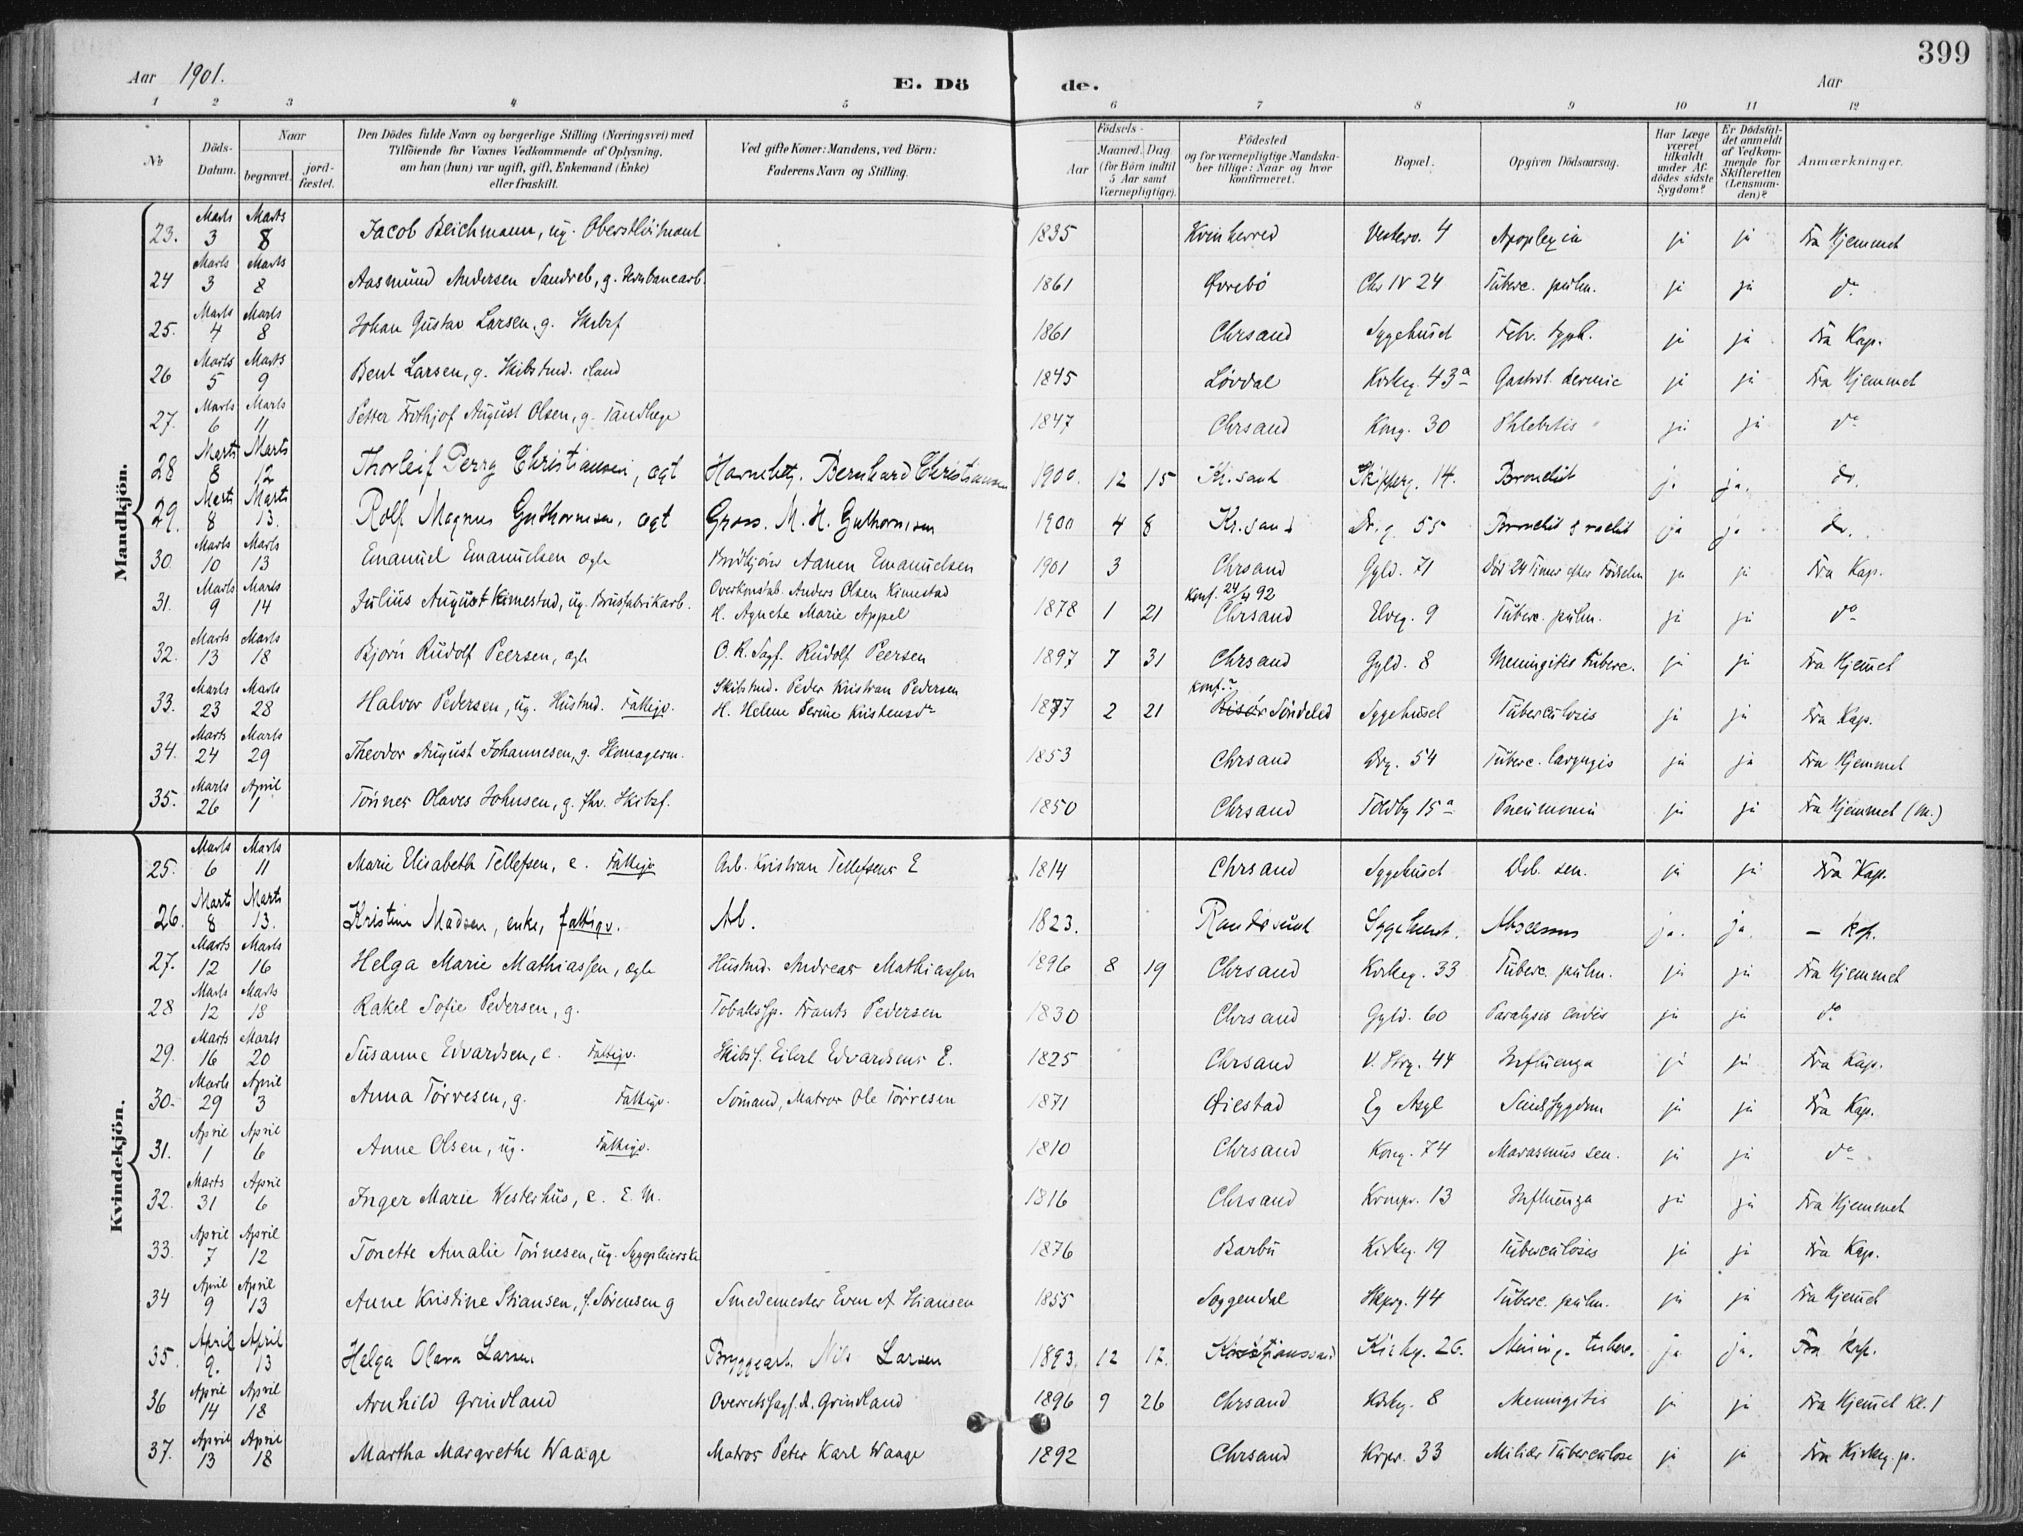 399
Aar 1901. E. Dö de. Aar
1 2 3 4 5 6 7 8 9 10 11 12
No
Döds-Datum.
Naar
begravet.
jord-fæstet.
Den Dödes fulde Navn og borgerlige Stilling (Næringsvei) med
Tilföiende for Voxnes Vedkommende af Oplysning,
om han (hun) var ugift, gift, Enkemand (Enke)
eller fraskilt.
Ved gifte Koner: Mandens, ved Börn:
Faderens Navn og Stilling.
Födsels-
Aar
Maaned. Dag
(for Börn indtil
5 Aar samt
Værnepligtige).
Födested
og for værnepligtige Mandska-
ber tillige: Naar og hvor
konfirmeret.
Bopæl.
Opgiven Dödsaarsag.
Har Læge
været
tilkaldt
under Af-
dödes sidste
Sygdom?
Er Dödsfal-
det anmeldt
af Vedkom-
mende for
Skifteretten
(Lensman-
den)?
Anmærkninger.
Mandkjön.
23. Marts 3 Marts 8 Jacob Beichmann, ug. Oberstløitnant 1835 Kvinherred 4 Apoplexia ja ja Fra Hjemmet
24 Marts 3 Marts 8 Aasmund Andersen g. Jernbanearb. 1861 Øvrebö Chr IV 24 Tuberc. pulm. ja ja do
25. Marts 4 Marts 8 Johan Gustav Larsen, g. Skibsf 1861 Chrsand Sygehuset Febr. typh. ja ja Fra Kap.
26 Marts 5 Marts 9 Bent Larsen, g. Skibstmd. 1845 Lövdal Kirkeg. 43a ja ja Fra Hjemmet
27. Marts 6 Marts 11 Petter Frithjof August Olsen, g. Tandlæge 1847 Chrsand Kong. 30 Phlebitis ja ja do
28 Marts 8 Marts 12 Thorleif Perry Christiansen, ægt Bernhard Christiansen 1900. 12 15 Kr.sand Skipperg. 14. Bronchit ja ja. do.
29. Marts 8 Marts 13. Rolf Magnus Guthormsen, ægt Gross. M. H. Guthormsen 1900 4 8 Kr.sand Dr.g. 55 ja ja do.
30. Marts 10 Marts 13 Emanuel Emanuelsen ægte Aanen Emanuelsen 1901 3 Chrsand Gyld. 71 Död 24 Timer efter Födselen ja ja Fra Kap.
31. Marts 9 Marts 14 Julius August Kimestad, ug. Brusfabrikarb. Overkonstab. Anders Olsen Kimestad
H. Agnethe Marie Appel 1878 1 21 Konf. 24/4 92 Chrsand Elveg. 9 Tuberc. pulm. ja ja do
32. Marts 13 Marts 18 Bjorn Rudolf Peersen, ægte O.R.Sagf. Rudolf Peersen 1897 7 31 Chrsand Gyld. 8 Meningitis Tuberc. ja ja Fra Hjemmet
33. Marts 23 Marts 28 Halvor Pedersen, ug. Hustmd. Fattigv. Skibstmd. Peder Kristian Pedersen
H. Helene Serine Kristensdr 1877 2 21 Konf. ? Risör Söndeled Sygehuset Tuberculosis ja ja Fra Kap.
34. Marts 24 Marts 29 Theodor August Johannesen, g. Skomagerm. 1853 Chrsand Drg. 54 Tuberc. laryngis ja ja Fra Hjemmet
35. Marts 26 April 1 Tönnes Olaves Johnsen, g. fhv. Skibsf. 1850 Chrsand Toldbg 15a Pneumonia ja ja Fra Hjemmet (M.)
Kvindekjön.
25. Marts 6 Marts 11 Marie Elisabeth Tellefsen, e. Fattigv Arb. Kristian Tellefsens E 1814 Chrsand Sygehuset Deb. sen. ja ja Fra Kap.
26. Marts 8 Marts 13. Kristine Madsen, enke, fattigv. Arb. 1823. Randösund Sygehuset. Abscessus ja. ja. – Kap.
27. Marts 12 Marts 16 Helga Marie Mathiassen, ægte Hustmd. Andreas Mathiassen 1896 8 19 Chrsand Kirkeg. 33 Tuberc. pulm. ja ja Fra Hjemmet
28 Marts 12 Marts 18 Rakel Sofie Pedersen, g. Frants Pedersen 1830 Chrsand Gyld. 60 Paralysis cordis ja ja do
29. Marts 16 Marts 20 Susanne Edvardsen, e. Fattigv. Skibsf. Eilert Edvardsens E. 1825 Chrsand V. Strg. 44 Influenza ja ja Fra Kap.
30. Marts 29 April 3 Anna Törresen, g. Fattigv. Sömand, Matros Ole Törresen 1871 Öiestad Eg Asyl Sindssygdom ja ja Fra Kap.
31. April 1 April 6 Anne Olsen, ug. Fattigv. 1810 Chrsand Kong. 74 Marasmus sen. ja ja do
32. Marts 31 April 6 Inger Marie Westerhus, e. E. M. 1816 Chrsand Kronpr. 13 Influenza ja ja Fra Hjemmet
33. April 7 April 12 Tonette Amalie Tönnesen, ug. Sygepleierske 1876 Barbu Kirkeg. 19 Tuberculosis ja ja Fra Kap.
34 April 9 April 13 Anne Kristine Stiansen, f. Sörensen g Smedemester Even A Stiansen 1855 Soggendal Skprg. 44 Tuberc. pulm. ja ja Fra Hjemmet
35. April 9. April 13 Helga Olava Larsen Bryggearb. Nils Larsen 1893. 12 17. Kristianssand Kirkeg. 26. Mening. tuberc. ja ja. Fra Kap.
36 April 14 April 18 Arnhild Grindland Overretssagf. A. Grindland 1896 9 26 Chrsand Kirkeg. 8 Meningitis ja ja Fra Hjemmet Kl. 1
37. April 13 April 18 Martha Margrethe Waage Matros Peter Karl Waage 1892 Chrsand Krpr. 33 Miliær Tuberculose ja ja Fra Kirkeg. p.